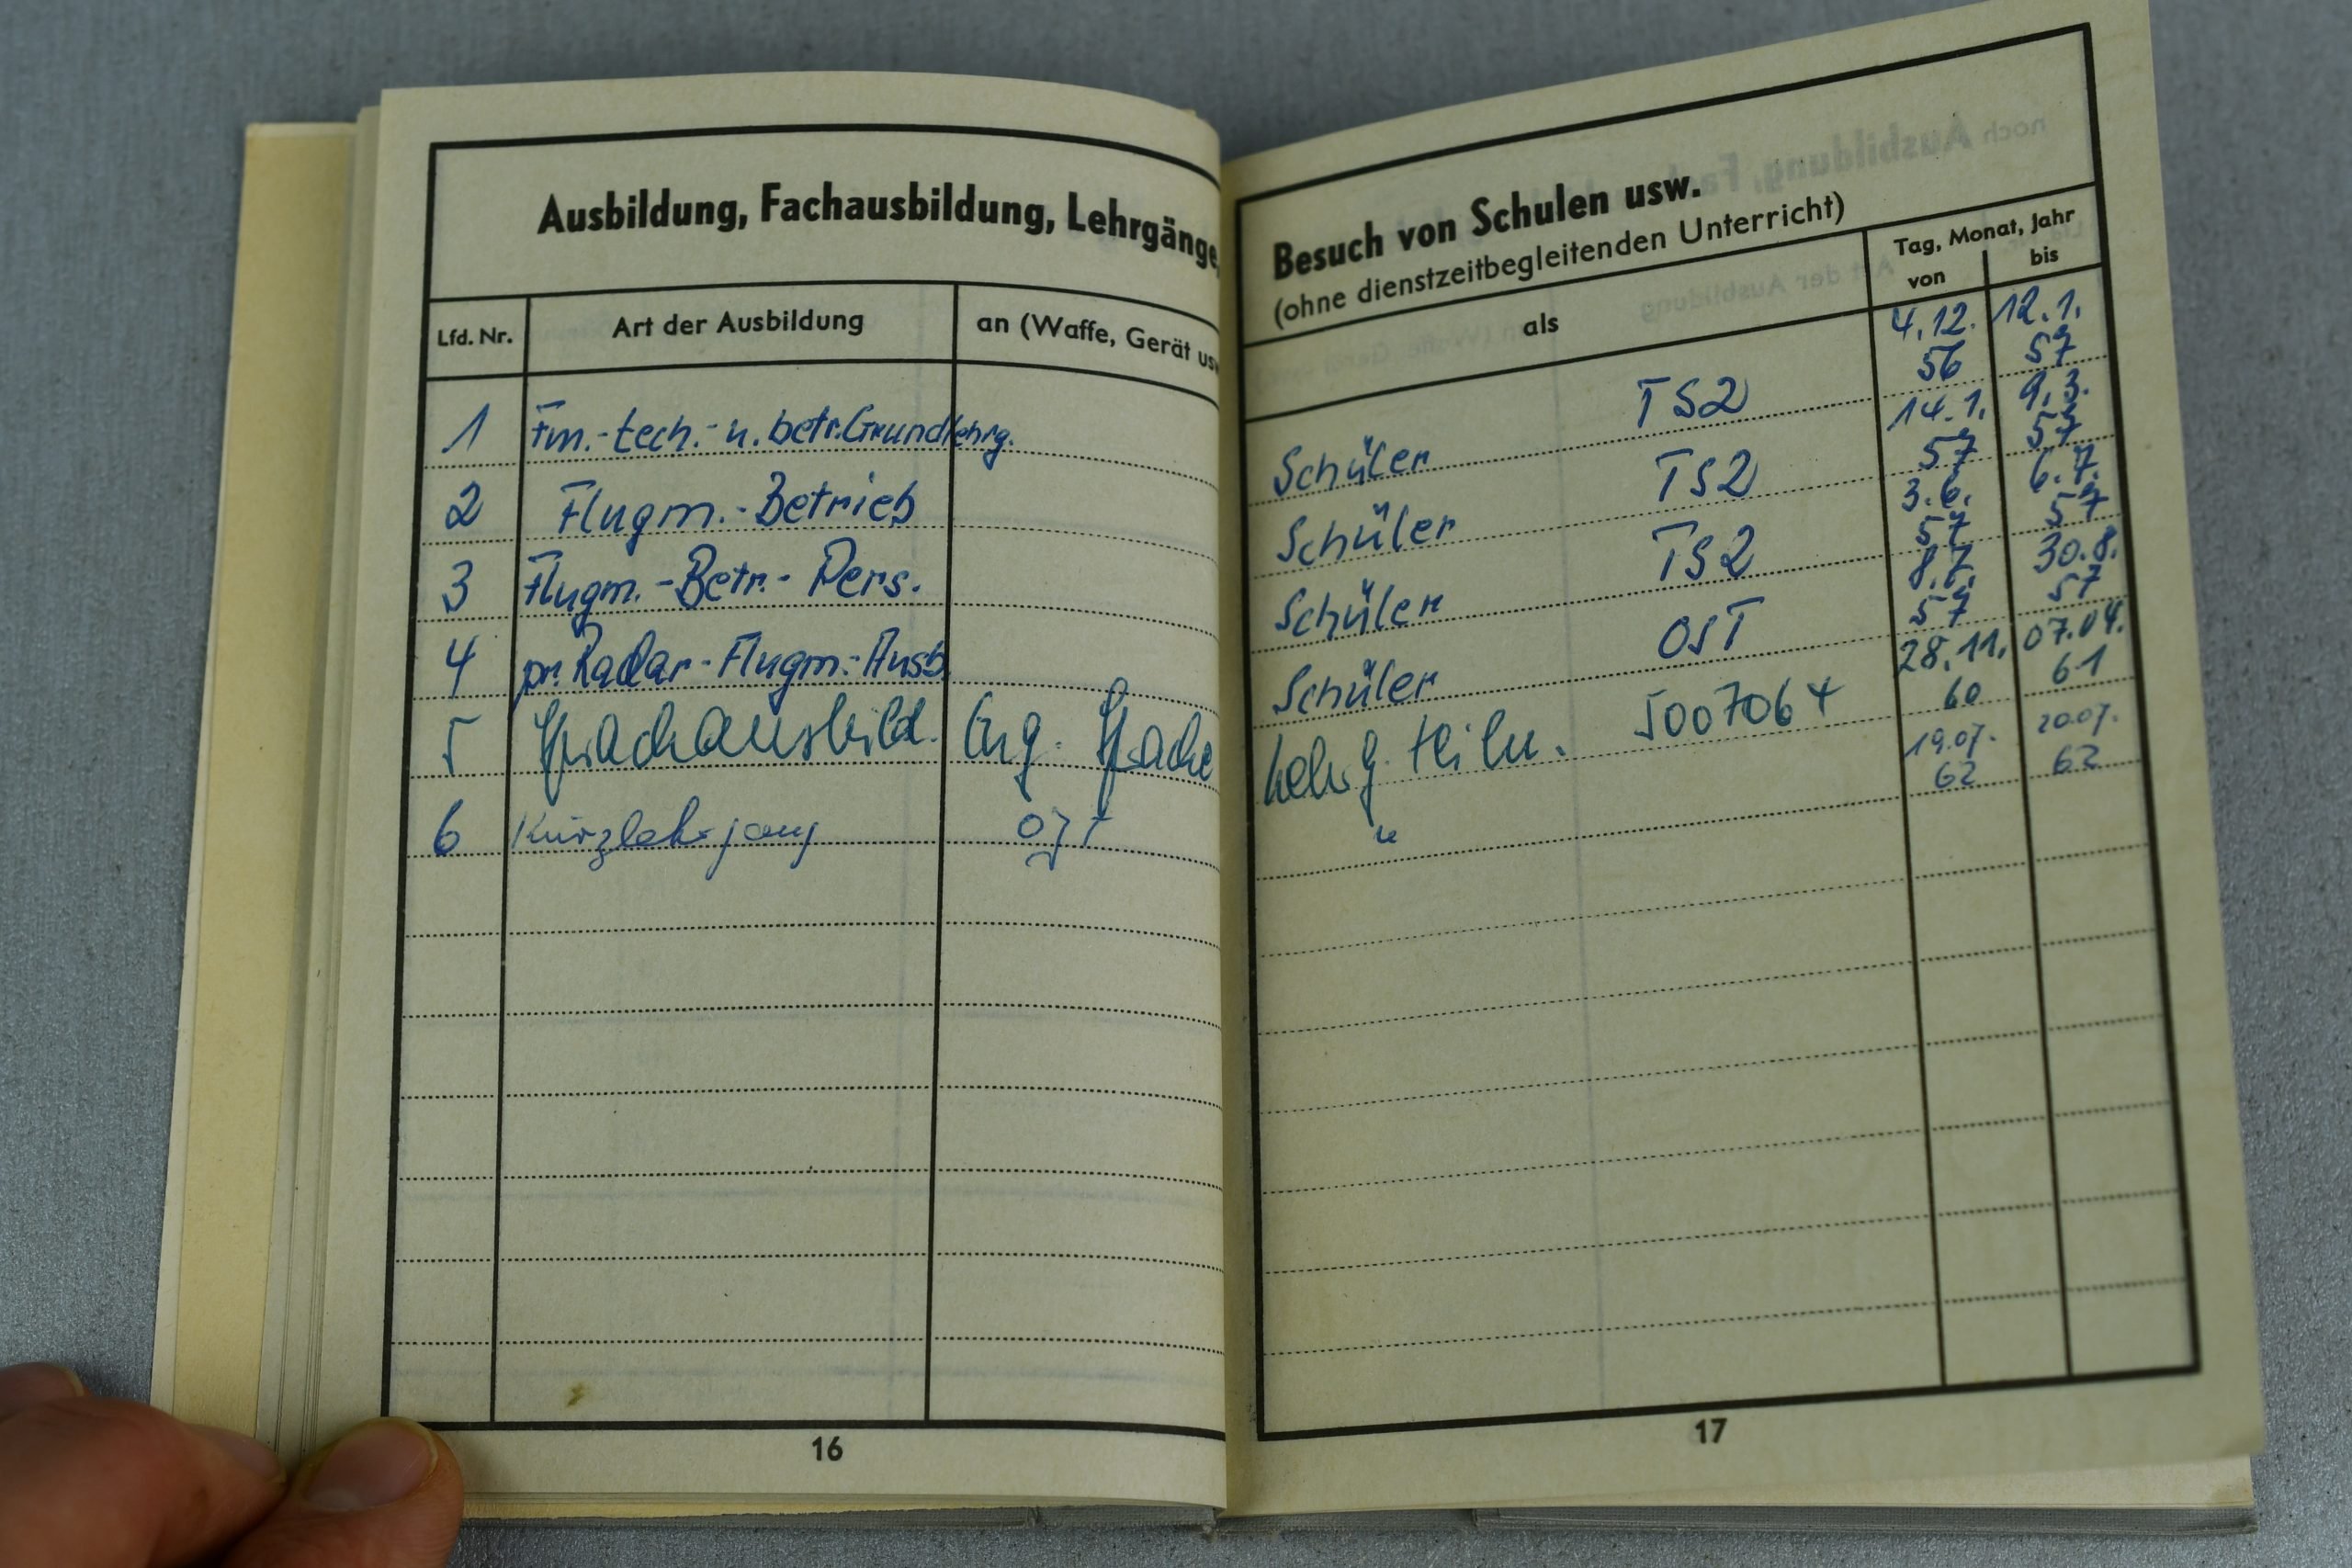 Ausbildung, Fachausbildung, Lehrgänge,
Lfd. Nr. Art der Ausbildung an (Waffe, Gerät usw
1 Fm.-tech.- u. betr. Grundlehrg.
2 Flugm.-Betrieb
3 Flugm.-Betr.-Pers.
4 pr. Radar-Flugm.-Ausb.
5 Sprachausbild. Eng. Sprache
6 Kurzlehrgang
16
Besuch von Schulen usw.
(ohne dienstzeitbegleitenden Unterricht)
als
Tag, Monat, Jahr
von bis
Schüler TS2 4.12. 56 12.1. 57
Schüler TS2 14.1. 57 9.3. 57
Schüler TS2 3.6. 57 6.7. 57
Schüler OST 8.7. 57 30.8. 57
Lehrg. teiln. 5007064 28.11. 60 07.04. 61
" 19.07. 62 20.07. 62
17
noch Ausbildung, Fa
Art der Ausbildung